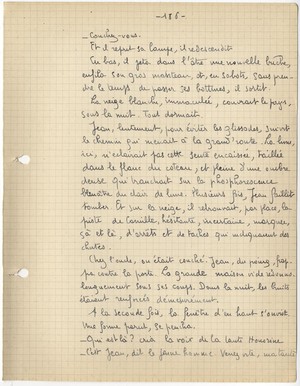 - 186 -
_ Couchez-vous.
Et il reprit sa lampe, il redescendit.
En bas, il jeta dans l'âtre une nouvelle bûche,
enfila son gros manteau, et, en sabots, sans pren-
dre le temps de passer des bottines, il sortit.
La neige blanche, immaculée, couvrait le pays,
sous la nuit. Tout dormait.
Jean, lentement, pour éviter les glissades, suivit
le chemin qui menait à la grand'route. La lune,
ici, n'éclairait pas cette sente encaissée, taillée
dans le flanc du coteau, et pleine d'une ombre
dense qui tranchait sur la phosphorescence
bleuâtre du clair de lune. Plusieurs fois, Jean faillit
tomber. Et sur la neige, il retrouvait, par place, la
piste de Camille, hésitante, incertaine, marquée,
çà et là, d'arrêts et de taches qui indiquaient des
chutes.
Chez l'oncle, on était couché. Jean, du poing, frap-
pa contre la porte. La grande maison vide résonna
longuement sous ses coups. Dans la nuit, les bruits
étaient renforcés démesurément.
A la seconde fois, la fenêtre d'en haut s'ouvrit.
Une forme parut, se pencha.
_ Qui est là ? cria la voix de la tante
_ C'est Jean, dit le jeune homme. Venez vite, ma tante